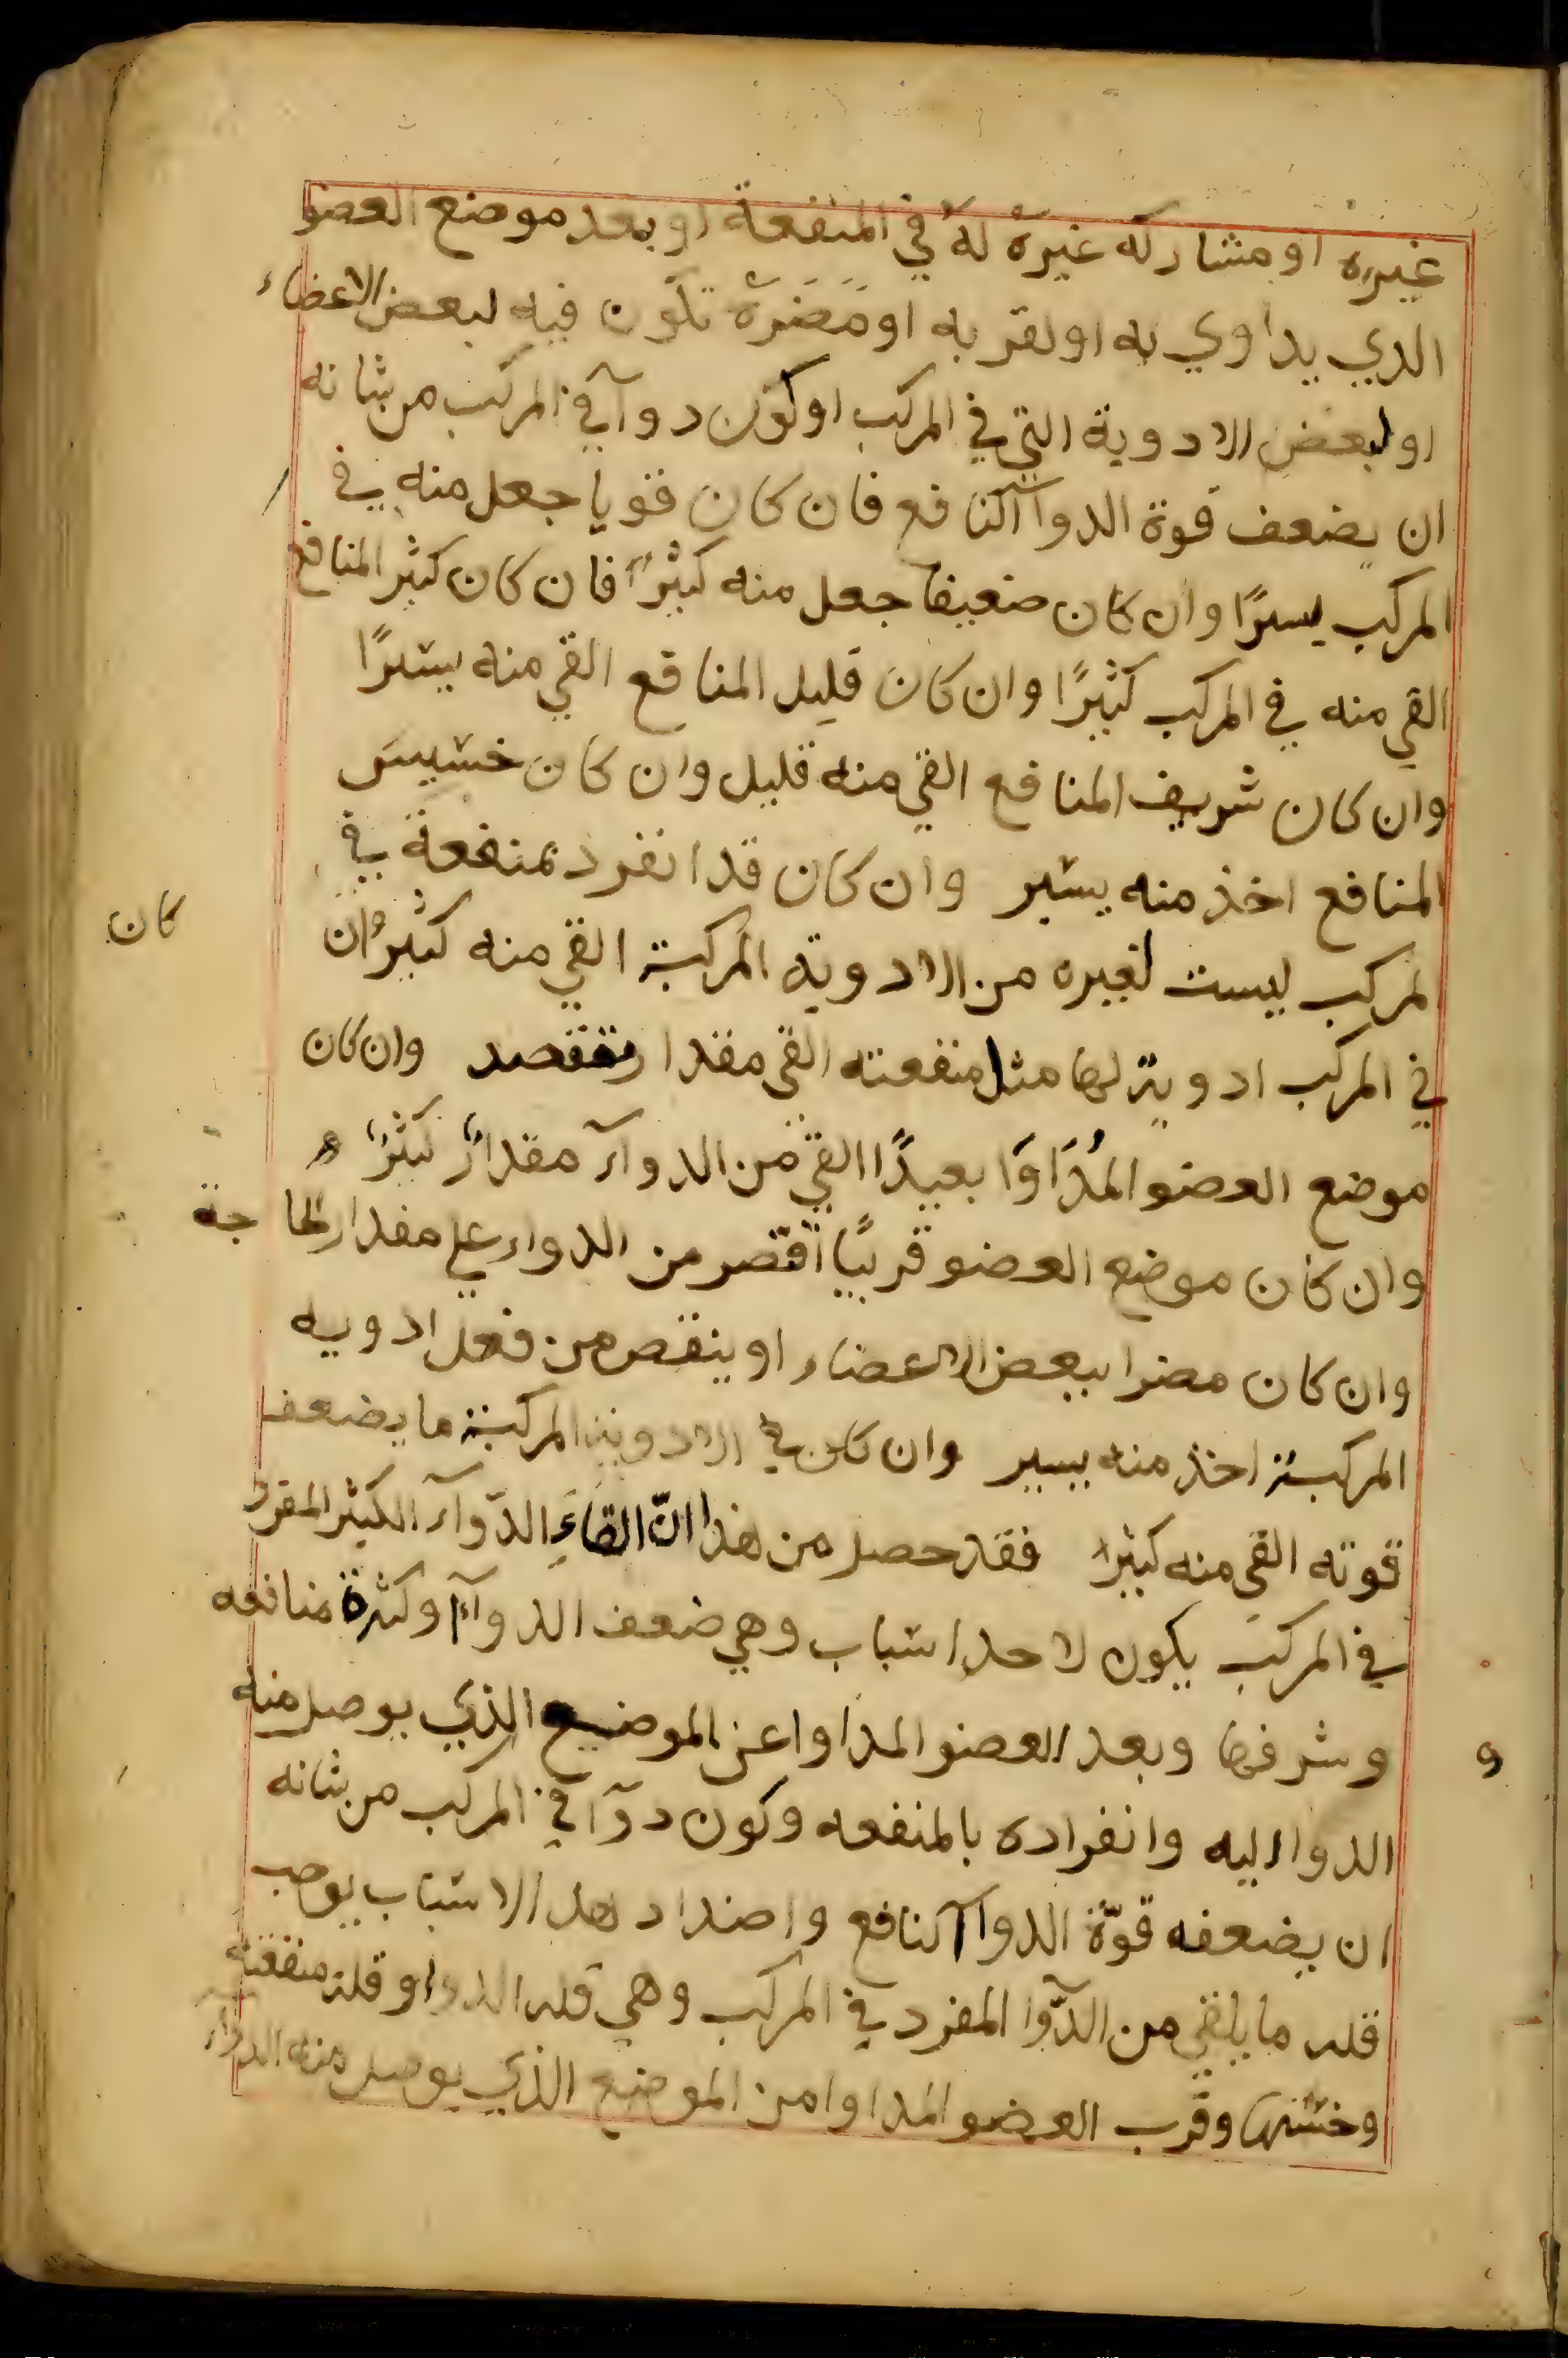 غيره او مشاركه غيره له في المنفعة او بعد موضع العضو
الدي يداوي به او لقربه او مَضَرة تكون فيه لبعض الاعضاء
او لبعض الادوية التي في المركب او كون دوآ في المركب من شانه
ان يضعف قوة الدوآ النافع فان كان قويا جعل منه في
المركب يسيرًا وان كان ضعيفا جعل منه كثيرًا فان كان كثير المنافع
القي منه في المركب كثيرًا وان كان قليل المنافع القي منه يسيرًا
وان كان شريف المنافع القي منه قليل وان كان خسيس
المنافع اخذ منه يسير وان كان قد انفرد بمنفعة في
لمركب ليست لغيره من الادوية المركبة القي منه كثيرًا وان
كان
في المركب ادوية لها مثل منفعته القي مقدار وان كان
موضع العضو المُدَاوَا بعيدًا القي من الدوآء مقدارًا كثيرًا
وان كان موضع العضو قريبًا اقتصر من الدواء علي مقدار الحاجة
وان كان مضرا ببعض الاعضاء او ينقص من فعل ادويه
المركبة اخذ منه يسير وان كان في الادوية المركبة ما يضعف
قوته القي منه كثيرا فقد حصل من هذا انّ القاءَ الدّوآء الكثير المفرد
في المركب يكون لاحد اسباب وهي ضعف الدوآء او كثرة منافعه
وشرفها وبعد العضو المداوا عن الموضع الذي يوصل منه
و
الدوا اليه وانفراده بالمنفعه وكون دوآ في المركب من شانه
ان يضعفه قوّة الدوا النافع واضداد هذا الاسباب يوجب
قله ما يلقي من الدّوا المفرد في المركب وهي قله الدوا وقلة منفعته
وخستها وقرب العضو المداوا من الموضع الذي يوصل منه الدواء